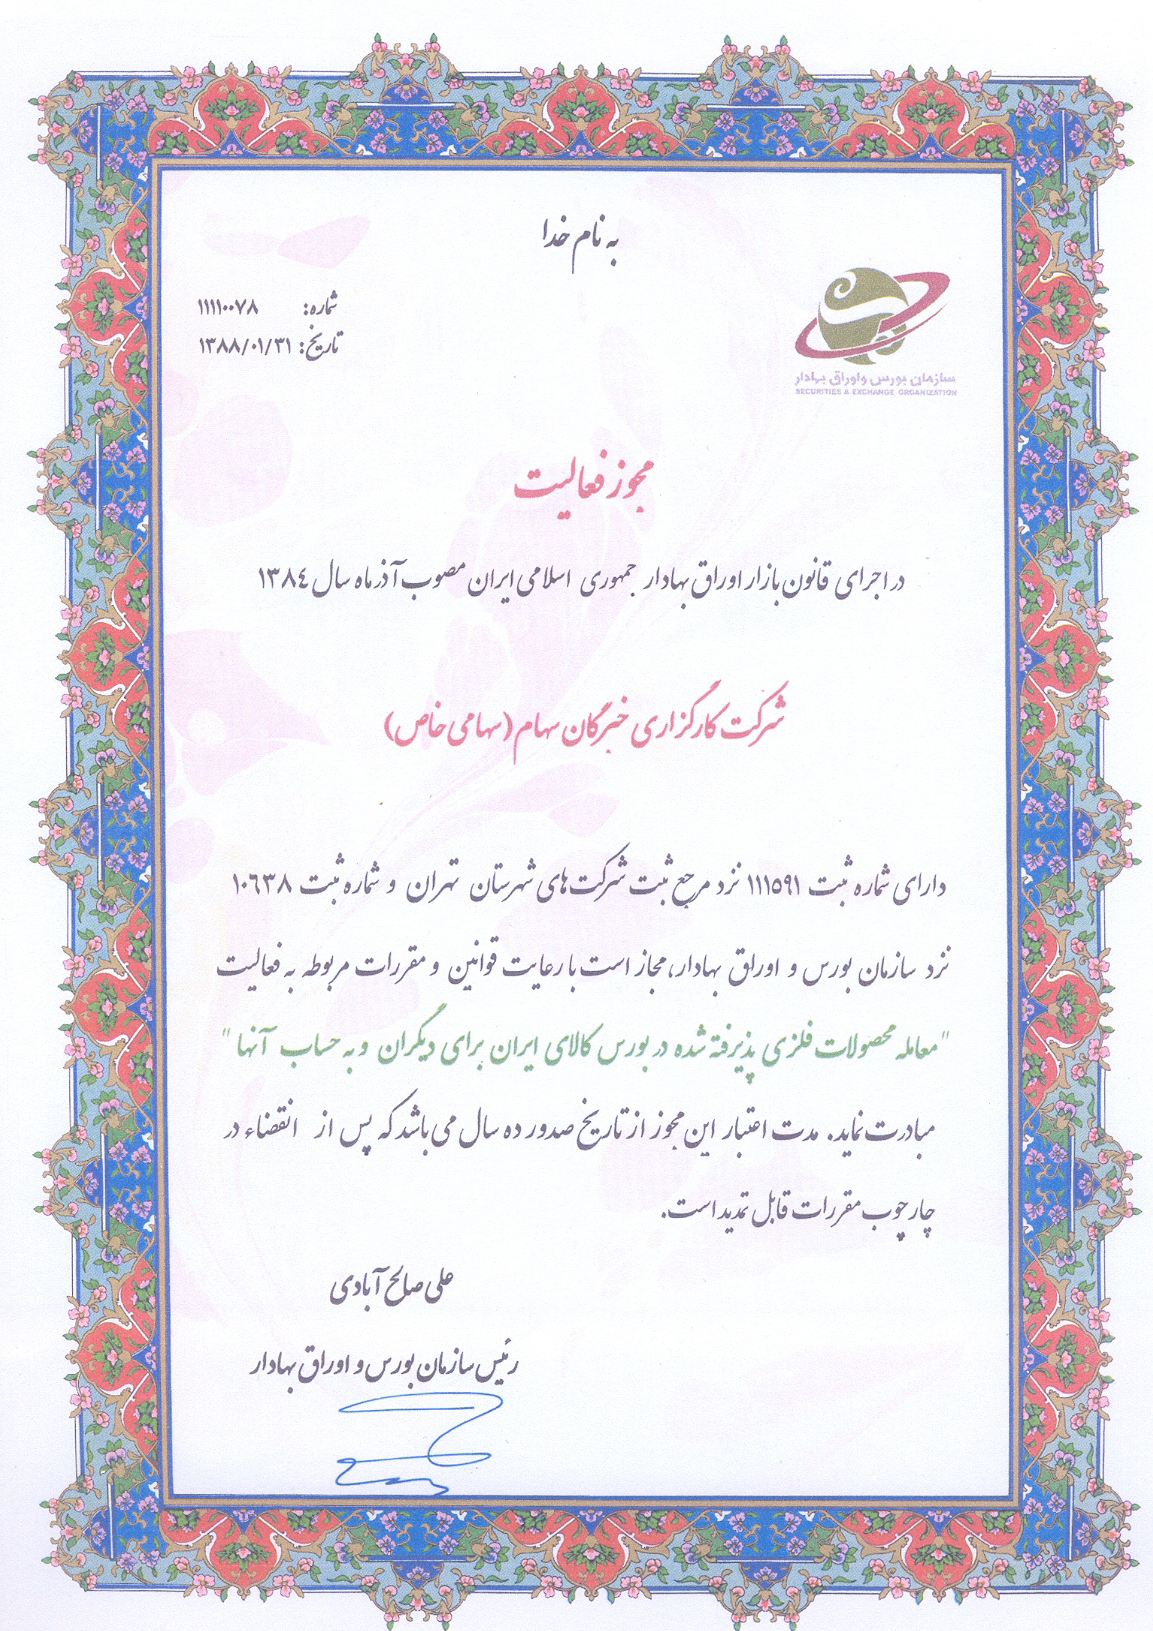 به نام خدا
شماره: ۱۱۱۱۰۰۷۸
تاریخ: ۱۳۸۸/۰۱/۳۱
سازمان بورس و اوراق بهادار
SECURITIES & EXCHANGE ORGANIZATION
مجوز فعالیت
در اجرای قانون بازار اوراق بهادار جمهوری اسلامی ایران مصوب آذر ماه سال ۱۳۸٤
شرکت کارگزاری خبرگان سهام (سهامی خاص)
دارای شماره ثبت ۱۱۱۵۹۱ نزد مرجع ثبت شرکت‌های شهرستان تهران و شماره ثبت ۱۰٦۳۸
نزد سازمان بورس و اوراق بهادار، مجاز است با رعایت قوانین و مقررات مربوطه به فعالیت
"معامله محصولات فلزی پذیرفته شده در بورس کالای ایران برای دیگران و به حساب آنها"
مبادرت نماید. مدت اعتبار این مجوز از تاریخ صدور ده سال می‌باشد که پس از انقضاء در
چارچوب مقررات قابل تمدید است.
علی صالح آبادی
رئیس سازمان بورس و اوراق بهادار